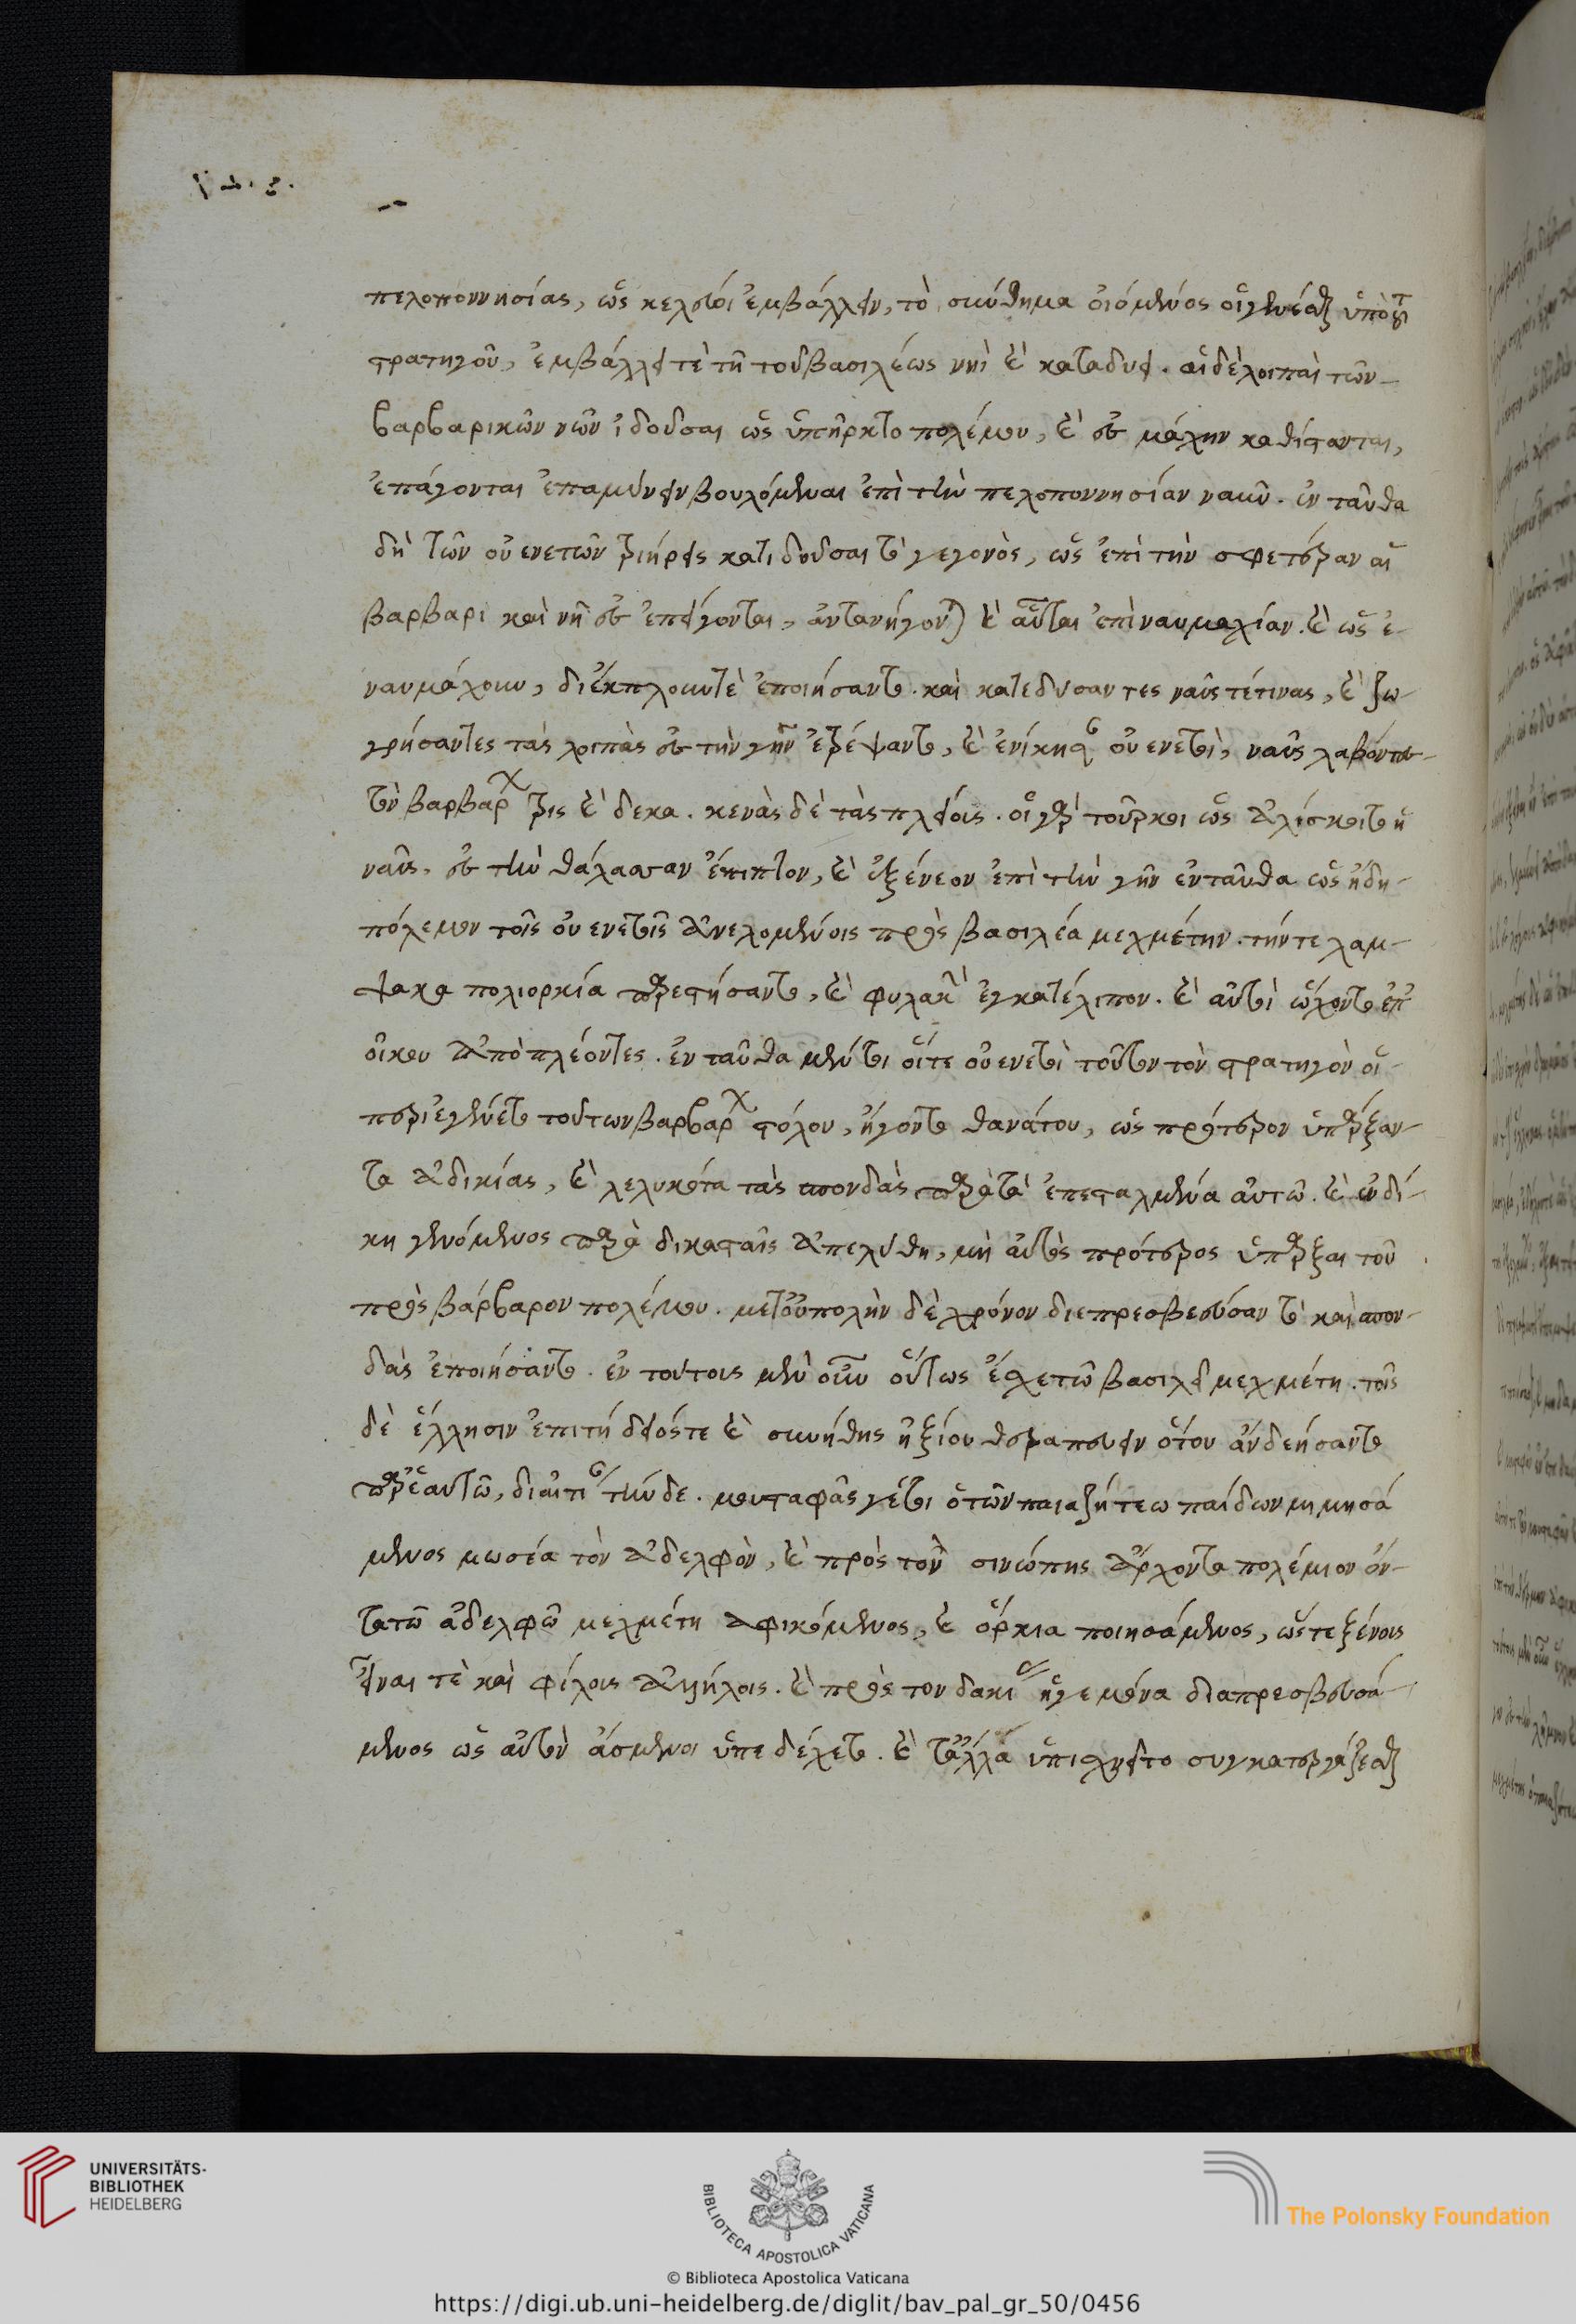 πελοποννησίας, ὡς κελεύοι ἐμβάλλειν, τὸ σύνθημα οἰόμενος οἱ γενέσθαι ὑπὸ τοῦ
στρατηγοῦ, ἐμβάλλει τὲ τῆ τοῦ βασιλέως νηῒ καὶ καταδύει. αἱ δὲ λοιπαὶ τῶν
βαρβαρικῶν νεῶν ἰδοῦσαι ὡς ὑπῆρκτο πολέμου, καὶ ἐς μάχην καθίστανται,
ἐπάγονται ἐπαμύνειν βουλόμεναι ἐπὶ τὴν πελοποννησίαν ναῦν. ἐν ταῦθα
δὴ τῶν οὐενετῶν τριήρεις κατιδοῦσαι τὸ γεγονὸς, ὡς ἐπὶ τὴν σφετέραν αἱ
βαρβαρι καὶ νῆ ἐς ἐπείγονται, ἀντανήγοντ καὶ αὗται ἐπὶ ναυμαχίαν. καὶ ὡς ἐ-
ναυμάχουν, διέκπλουν τὲ ἐποιήσαντο. καὶ κατεδυσαν τες ναῦς τέ τινας, καὶ ζω-
γρήσαντες τὰς λοιπὰς ἐς τὴν γῆν ἐτρέψαντο, καὶ ἐνίκησαν οὐενετοὶ, ναῦς λαβόντες
τῶν βαρβαρικ τρις καὶ δεκα. κενὰς δὲ τὰς πλείους. οἱ γὰρ τοῦρκοι ὡς ἁλίσκοιτο ἡ
ναῦς, ἐς τὴν θάλασσαν ἔπιπτον, καὶ ἐξένεον ἐπὶ τὴν γῆν ἐνταῦθα ὡς ἤδη
πόλεμον τοῖς οὐενετοῖς ἀνελομένοις πρὸς βασιλέα μεχμέτην. τήν τε λαμ-
ψακο πολιορκία παρεστήσαντο, καὶ φυλακὴν ἐγκατέλιπον. καὶ αὐτοὶ ᾤχοντο ἐπ
οἴκου ἀπὸ πλέοντες. ἐν ταῦθα μέντοι οἵ τε οὐενετοὶ τοῦτον τὸν στρατηγὸν οἱ
περιεγένετο τοῦ των βαρβαρικ στόλου, ἤγοντο θανάτου, ὡς πρότερον ὑπάρξαν-
τα ἀδικίας, καὶ λελυκότα τὰς σπονδὰς παρὰ τὰ ἐπεσταλμένα αὐτῶ. καὶ ἐν δί-
κη γενόμενος παρὰ δικασταῖς ἀπελύθη, μὴ αὐτὸς πρότερος ὑπάρξαι τοῦ
πρὸς βάρβαρον πολέμου. μετ οὐ πολὴν δὲ χρόνον διεπρεσβεύσαν τὸ καὶ σπον-
δὰς ἐποιήσαντο. ἐν τούτοις μὲν οὖν οὕτως ἔσχε τῶ βασιλεῖ μεχμέτη. τοῖς
δὲ ἕλλησιν ἐπιτήδειός τε καὶ συνήθης ἠξίου θεραπεύειν ὅτου ἂν δεήσαντο
παρ ἑαυτῶ, δι αἰτι τήνδε. μουσταφᾶς γέτοι ὁ τῶν παιαζήτεω παίδων μιμησά
μενος μωσέα τὸν ἀδελφὸν, καὶ πρὸς τὸν σινώπης ἄρχοντα πολέμιον ὄν-
τα τῶ ἀδελφῶ μεχμέτη ἀφικόμενος, καὶ ὅρκια ποιησάμενος, ὥστε ξένοις
εἶναι τὲ καὶ φίλοις ἀλλήλοις. καὶ πρὸς τον δακι ἡγεμόνα διαπρεσβευσά-
μενος ὡς αὐτὸν ἄσμενοι ὑπε δέχετο. καὶ τἆλλά ὑπισχνεῖτο συγκατεργάζεσθαι
UNIVERSITÄTS-
BIBLIOTHEK
HEIDELBERG
BIBLIOTECA APOSTOLICA VATICANA
The Polonsky Foundation
© Biblioteca Apostolica Vaticana
https://digi.ub.uni-heidelberg.de/diglit/bav_pal_gr_50/0456